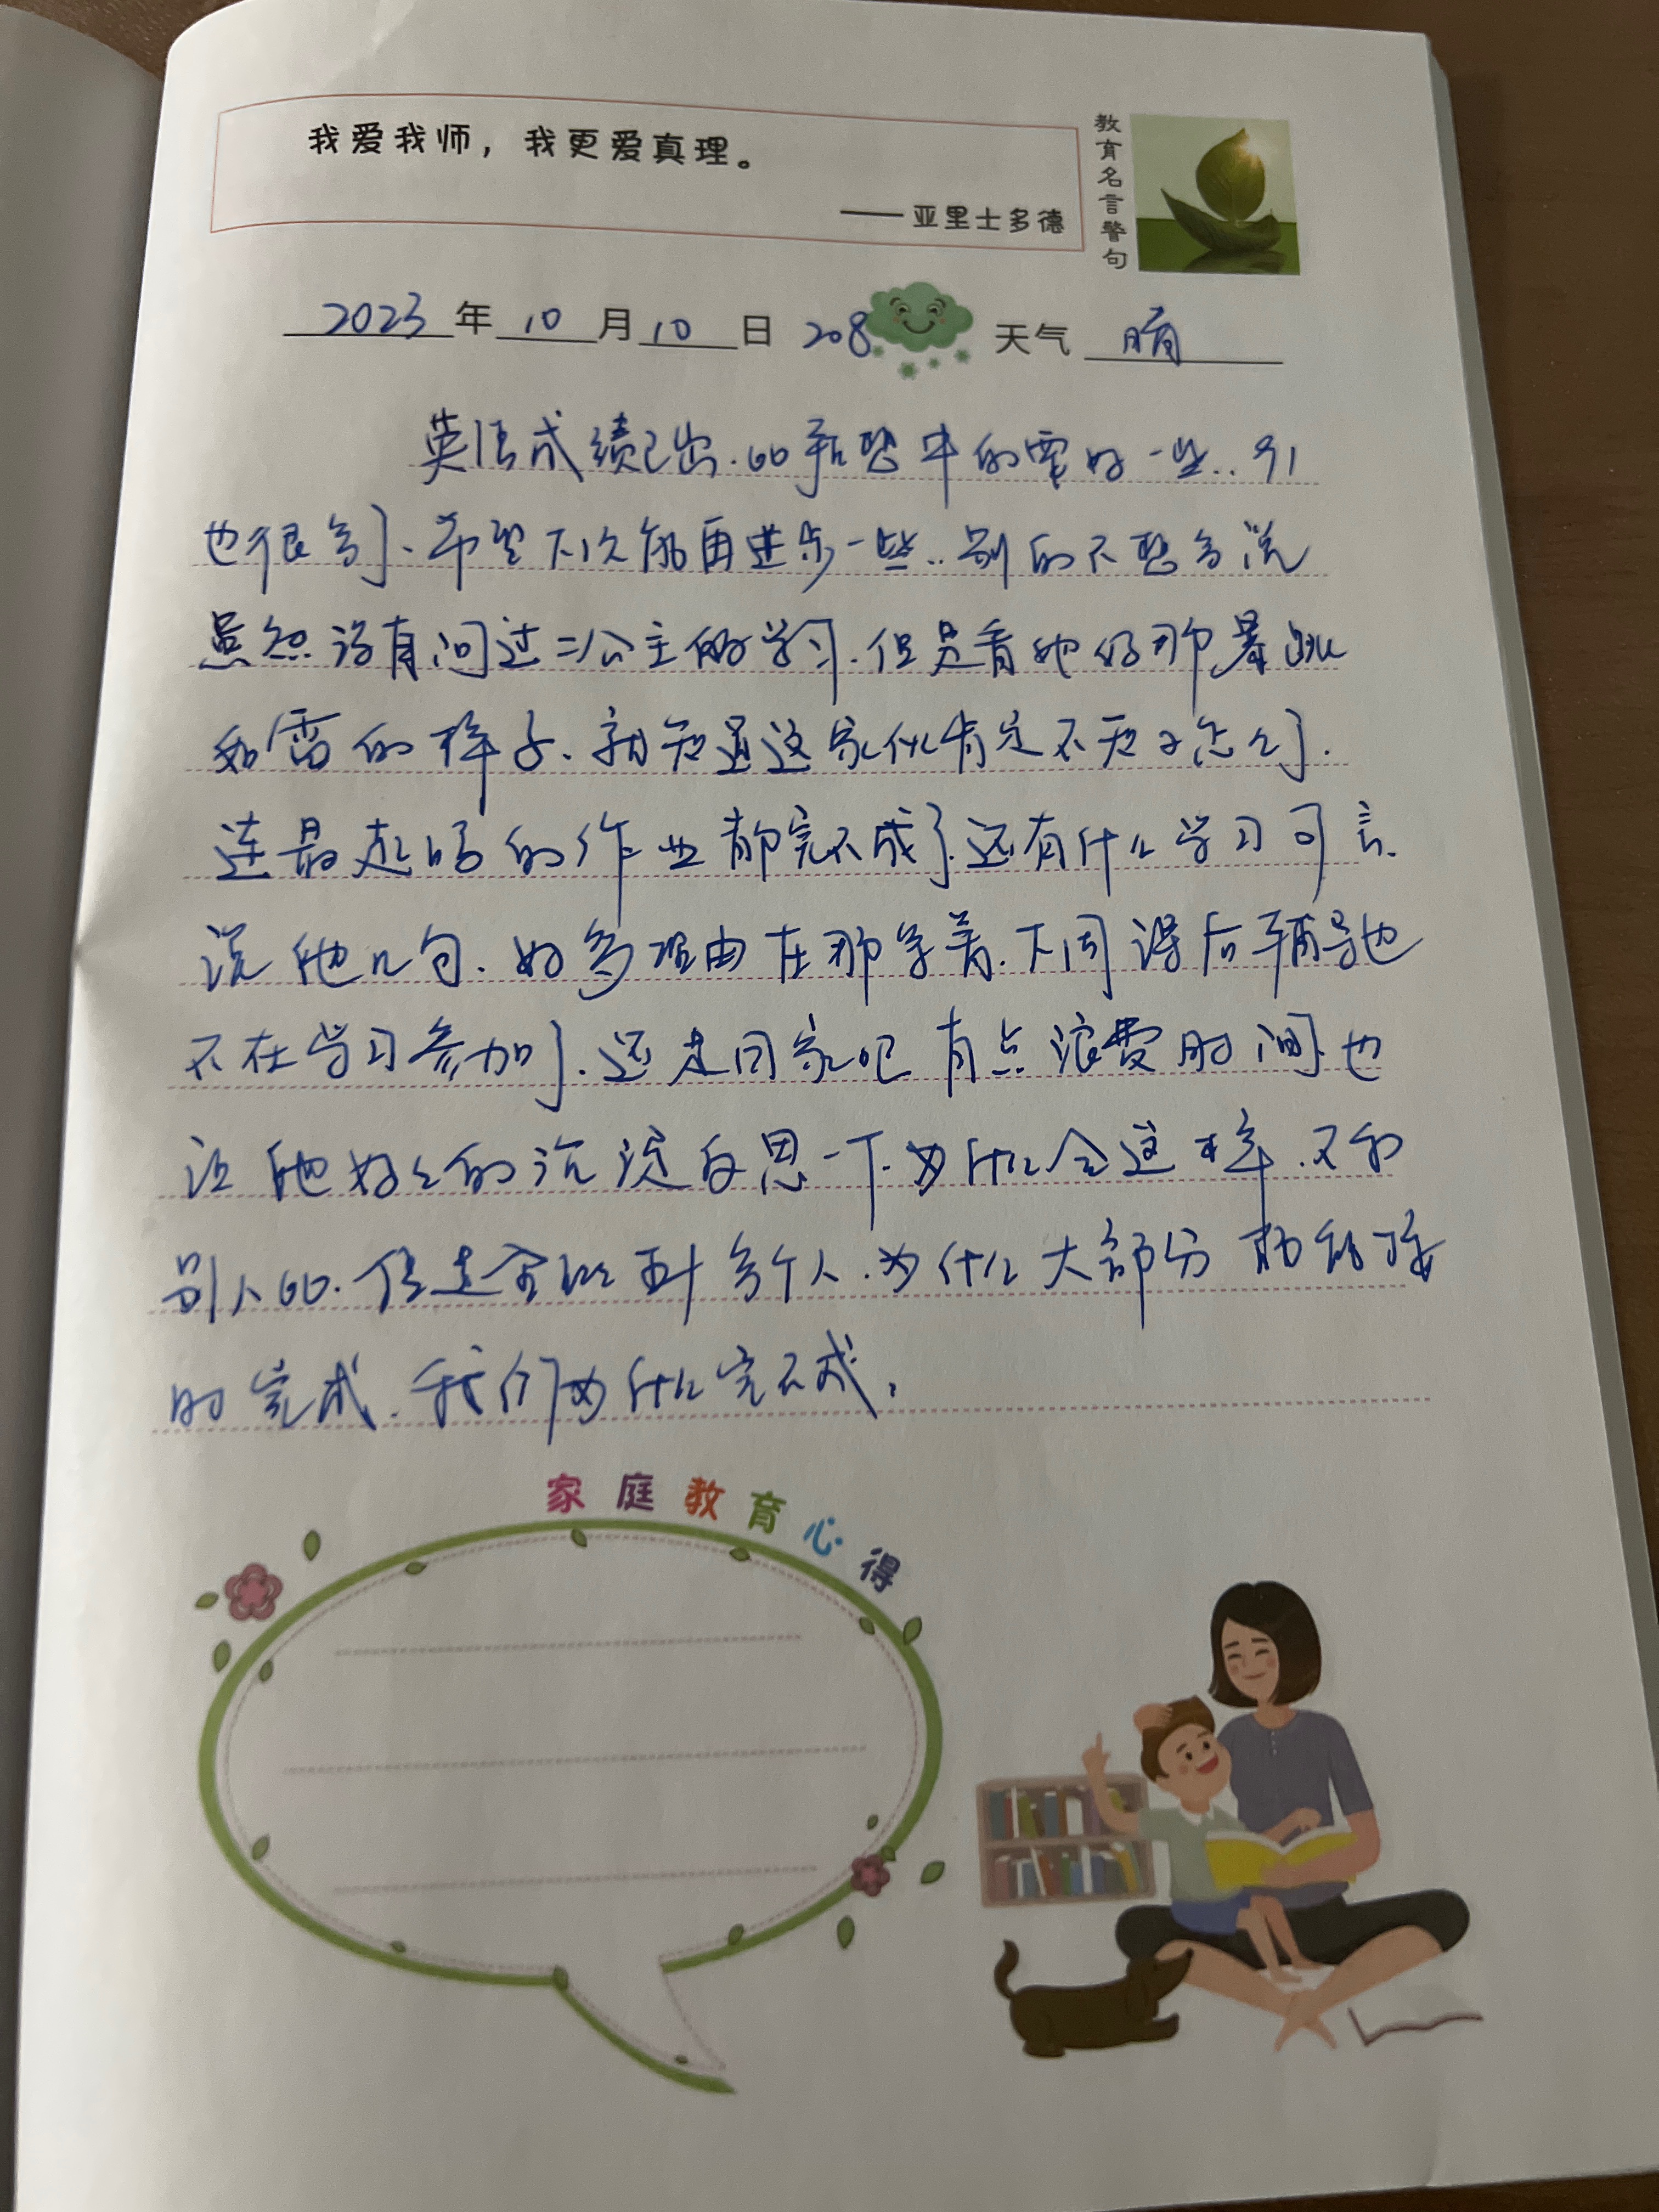 我爱我师，我更爱真理。
——亚里士多德
教育名言警句
2023年10月10日 208 天气 晴
英语成绩已出.比手想中的要好一些..91
也很多了、希望下次能再进步一些..别的不想多说
虽然没有问过二公主的学习.但是看她妈那暴跳
如雷的样子、就知道这家伙肯定不知又怎么了.
连最起码的作业都完不成了.还有什么学习可言.
说她几句.好多理由在那等着.下周课后辅导她
不在学习参加了.还是回家吧 有点浪费时间.也
让她好好的沉淀反思一下.为什么会这样.不和
别人比.但是全班五十多个人.为什么大部分都能
的完成.我们为什么完不成.
家庭教育心得